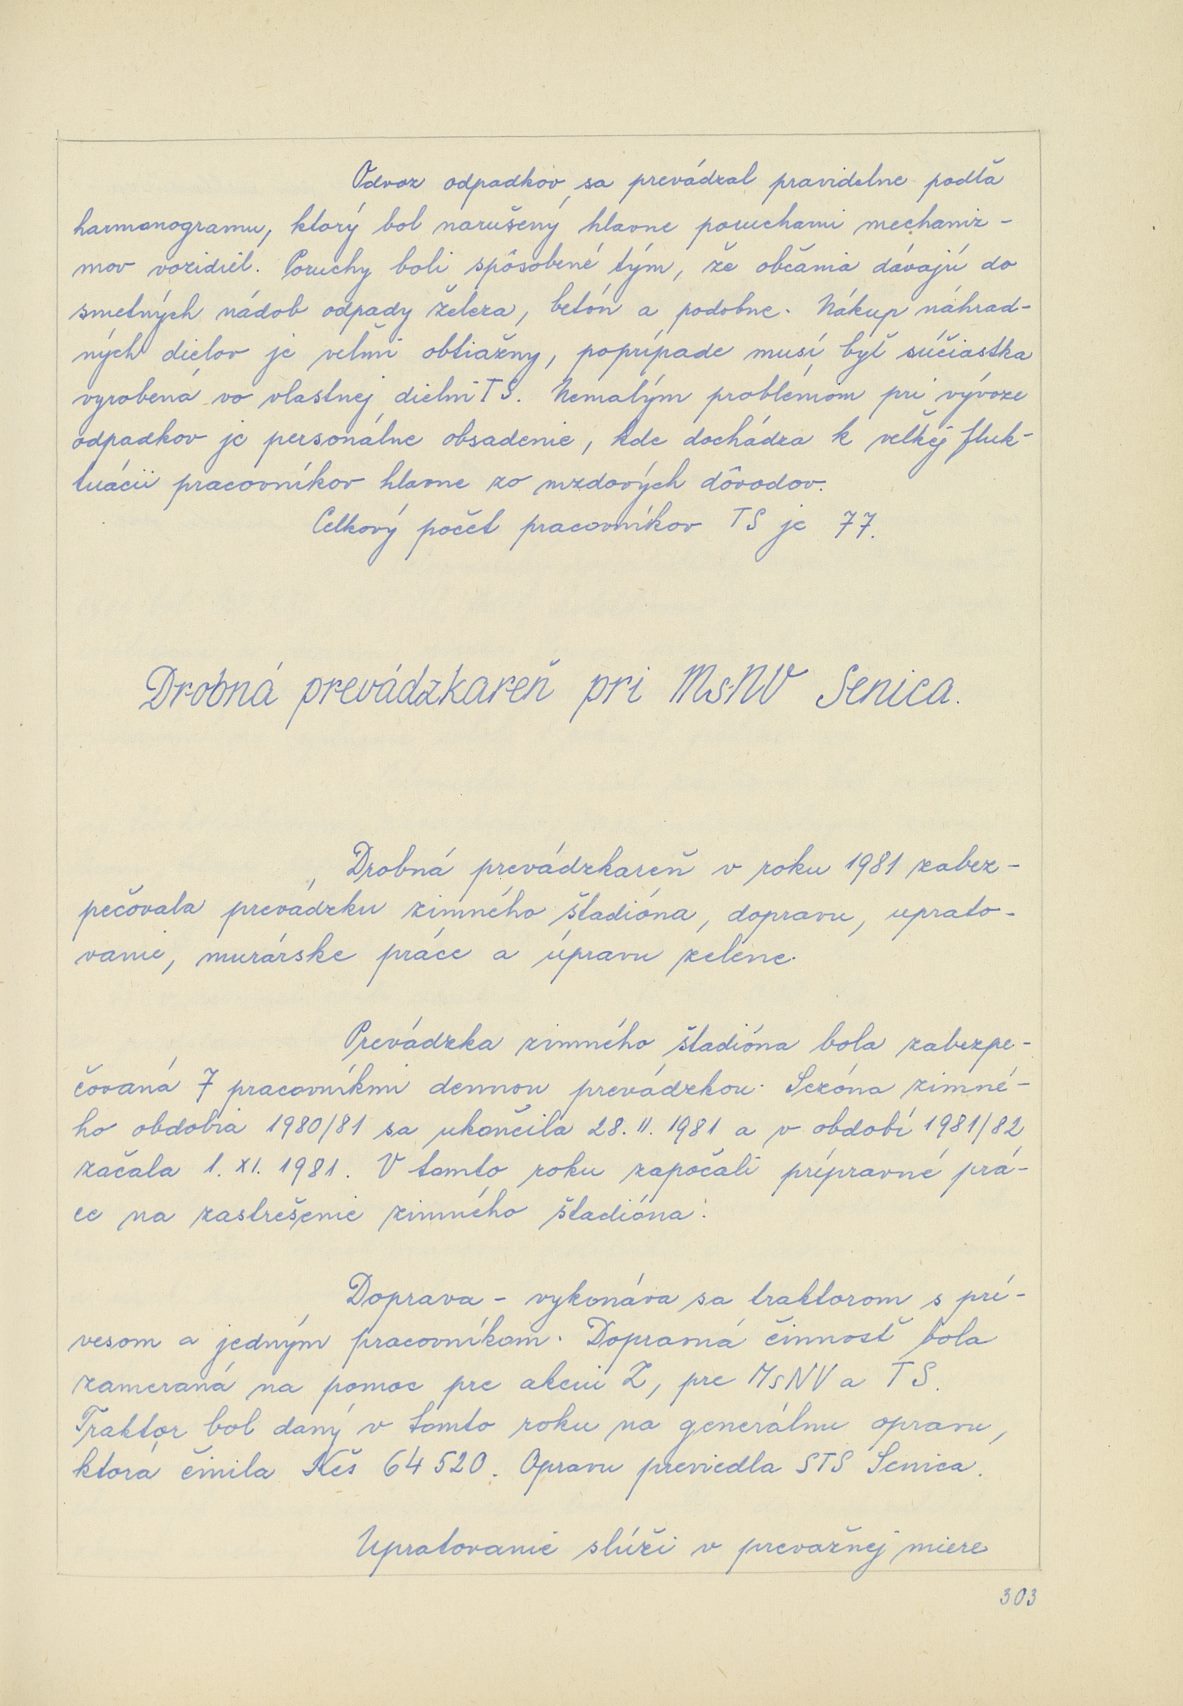 Odvoz odpadkov sa prevádzal pravidelne podľa
harmonogramu, ktorý bol narušený hlavne poruchami mechaniz-
mov vozidiel. Poruchy boli spôsobené tým, že občania dávajú do
smetných nádob odpady železa, betón a podobne. Nákup náhrad-
ných dielov je veľmi obtiažny, poprípade musí byť súčiastka
vyrobená vo vlastnej dielni TS. Nemalým problémom pri vývoze
odpadkov je personálne obsadenie, kde dochádza k veľkej fluk-
tuácii pracovníkov hlavne zo mzdových dôvodov.
Celkový počet pracovníkov TS je 77.
Drobná prevádzkareň pri MsNV Senica.
Drobná prevádzkareň v roku 1981 zabez-
pečovala prevádzku zimného štadióna, dopravu, uprato-
vanie, murárske práce a úpravu zelene.
Prevádzka zimného štadióna bola zabezpe-
čovaná 7 pracovníkmi dennou prevádzkou. Sezóna zimné-
ho obdobia 1980/81 sa ukončila 28. II. 1981 a v období 1981/82
začala 1. XI. 1981. V tomto roku započali prípravné prá-
ce na zastrešenie zimného štadióna.
Doprava - vykonáva sa traktorom s prí-
vesom a jedným pracovníkom. Dopravná činnosť bola
zameraná na pomoc pre akciu Z, pre MsNV a TS.
Traktor bol daný v tomto roku na generálnu opravu,
ktorá činila Kčs 64 520. Opravu previedla STS Senica.
Upratovanie slúži v prevažnej miere
303